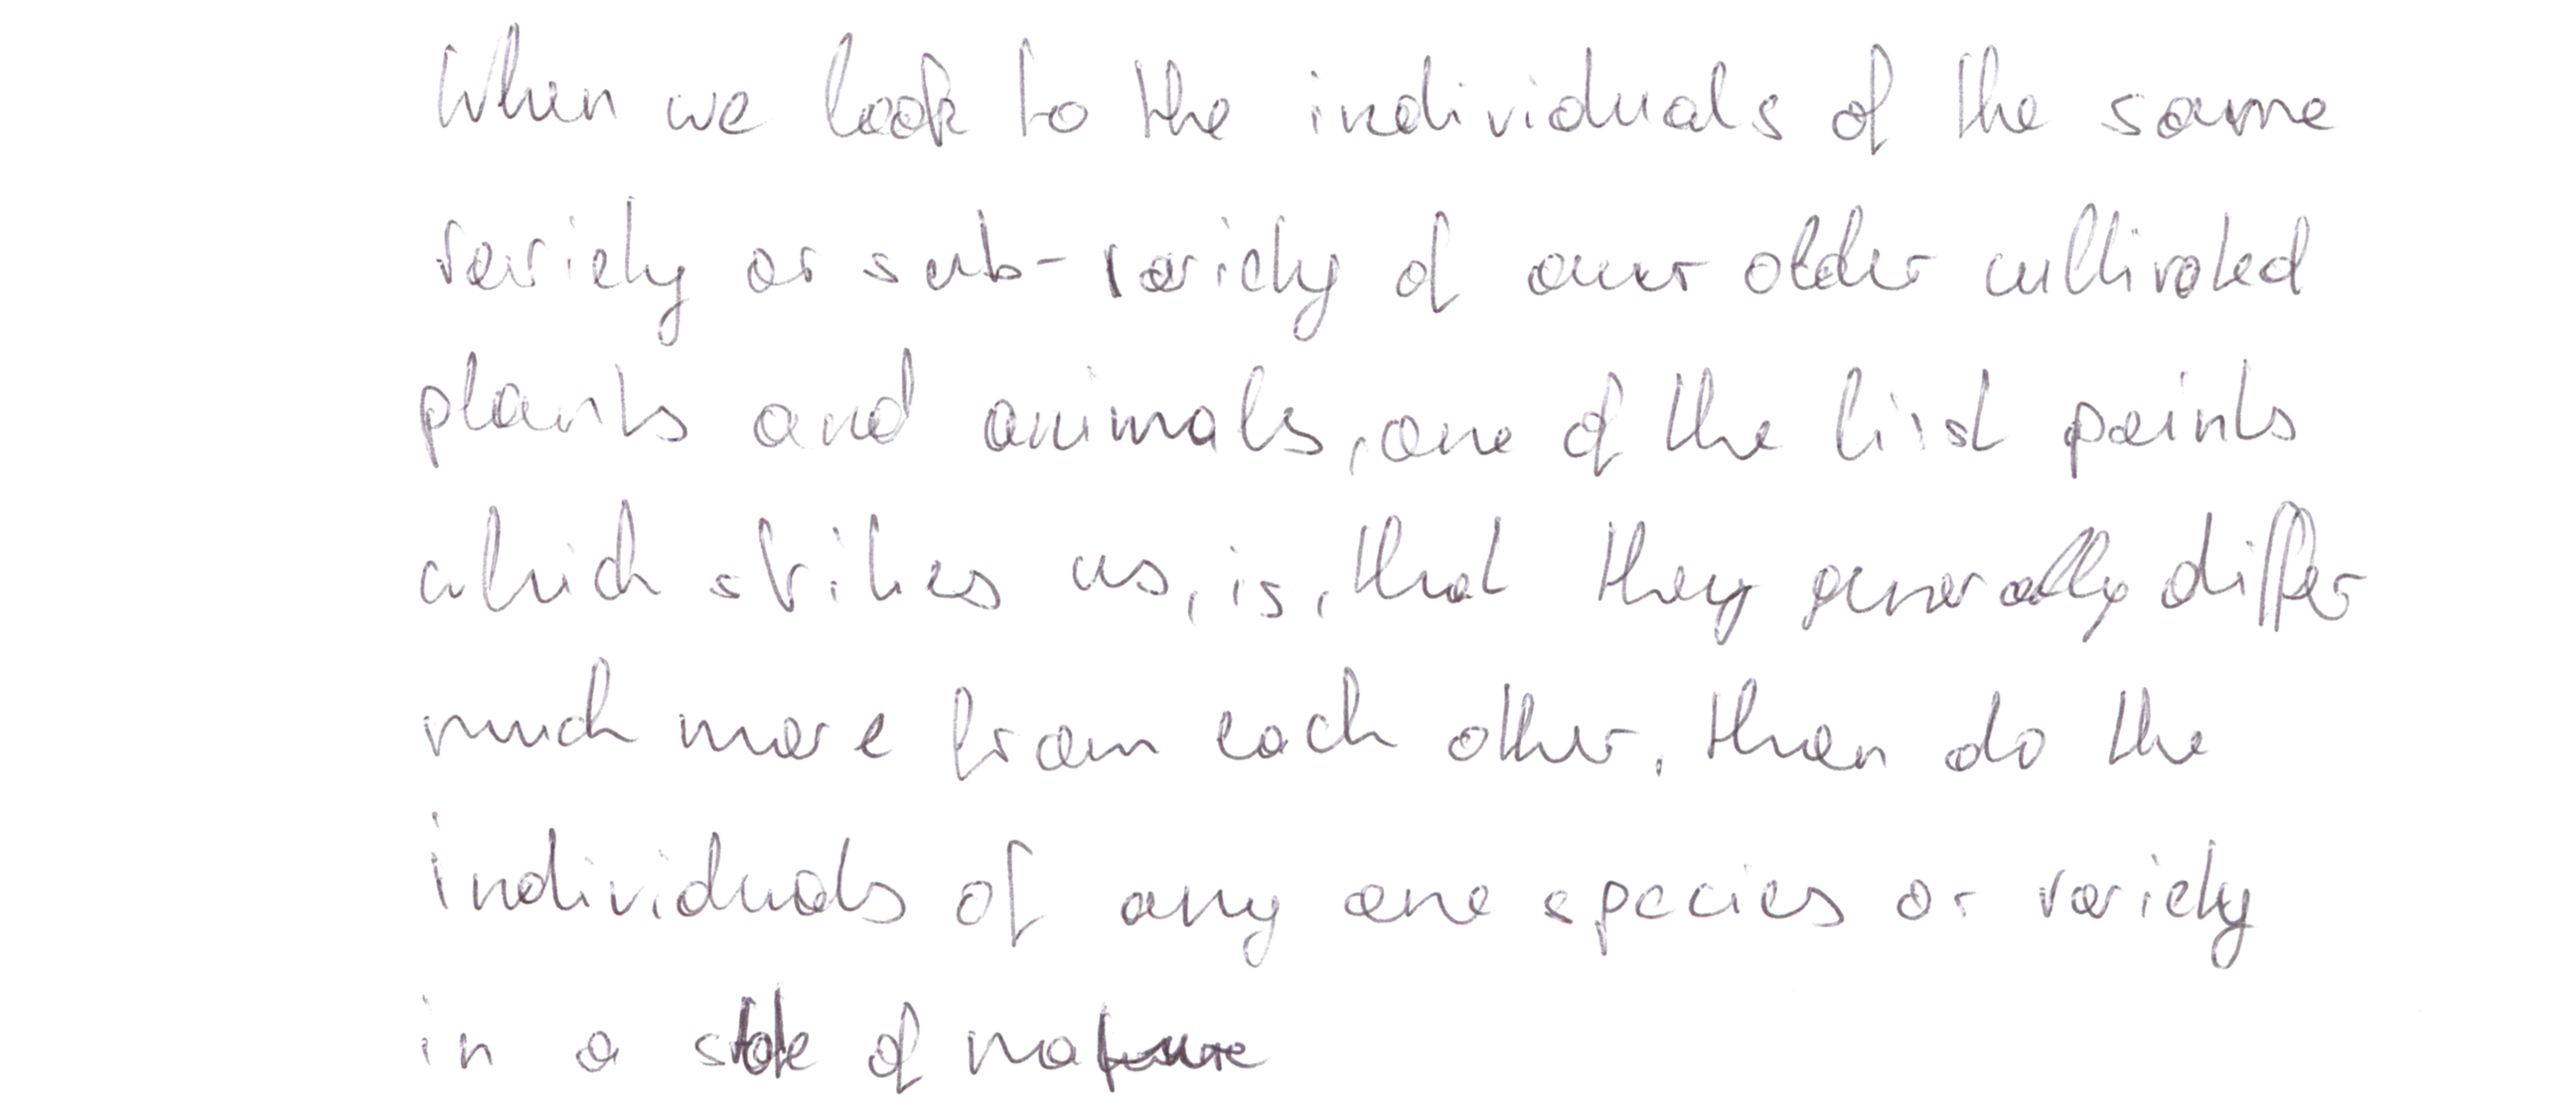 When we look to the individuals of the same
variety or sub-variety of our older cultivated
plants and animals, one of the first points
which strikes us, is, that they generally differ
much more from each other, than do the
individuals of any one species or variety
in a state of nature